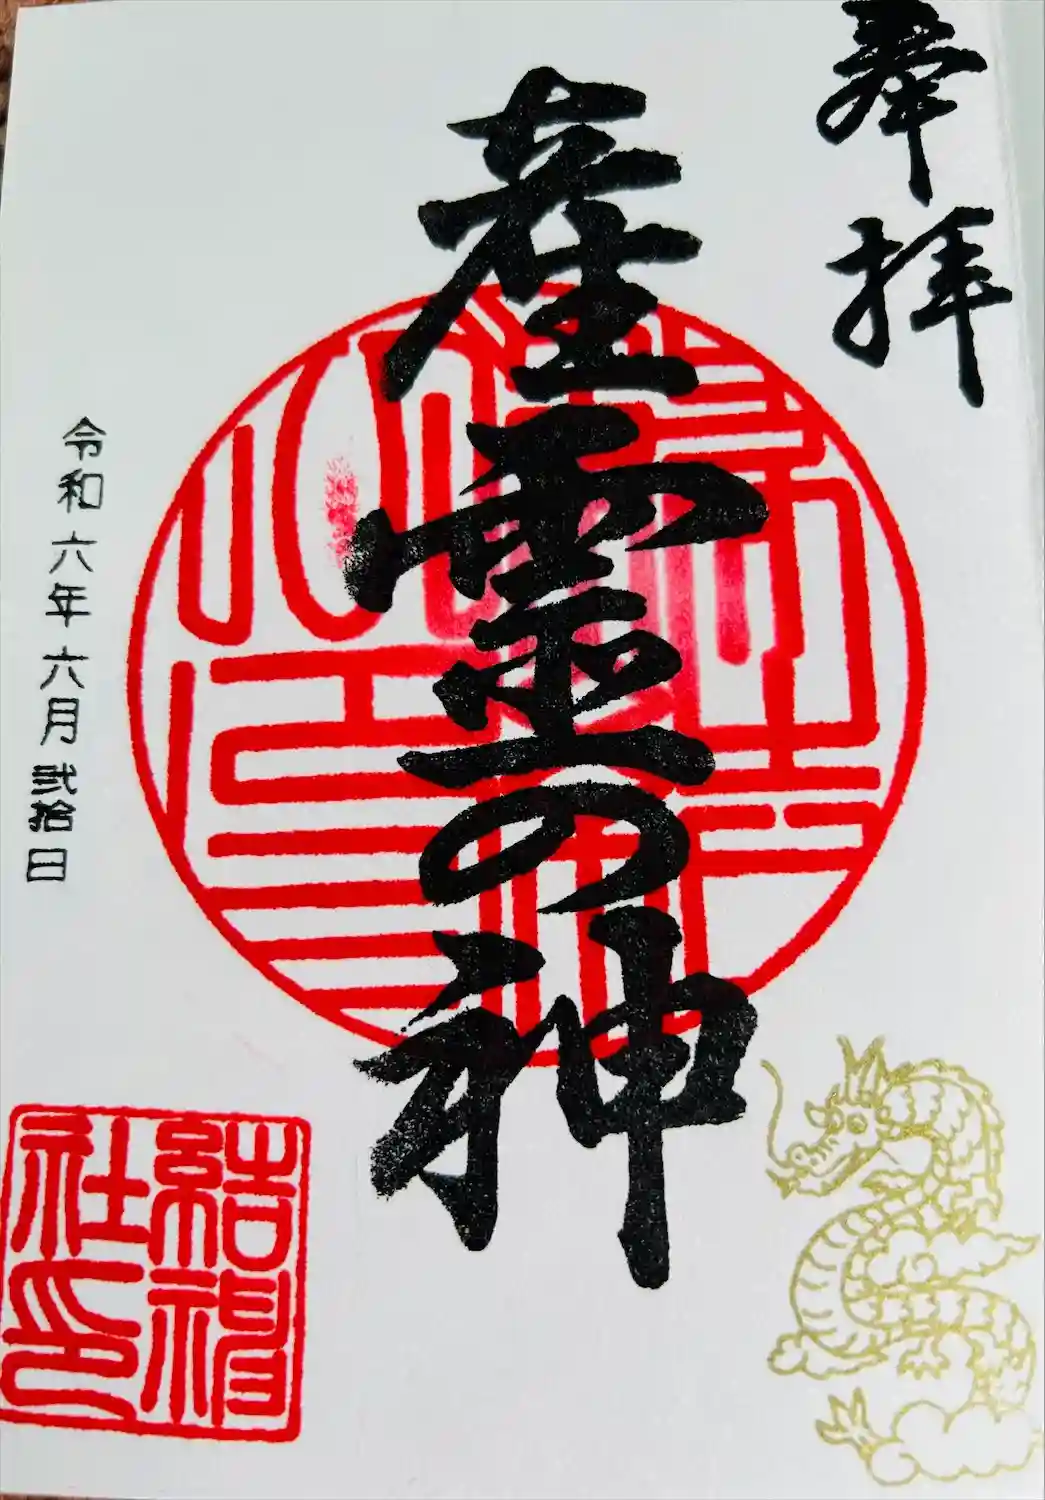 奉拝
産霊の神
令和六年六月弐拾日
結神
社印